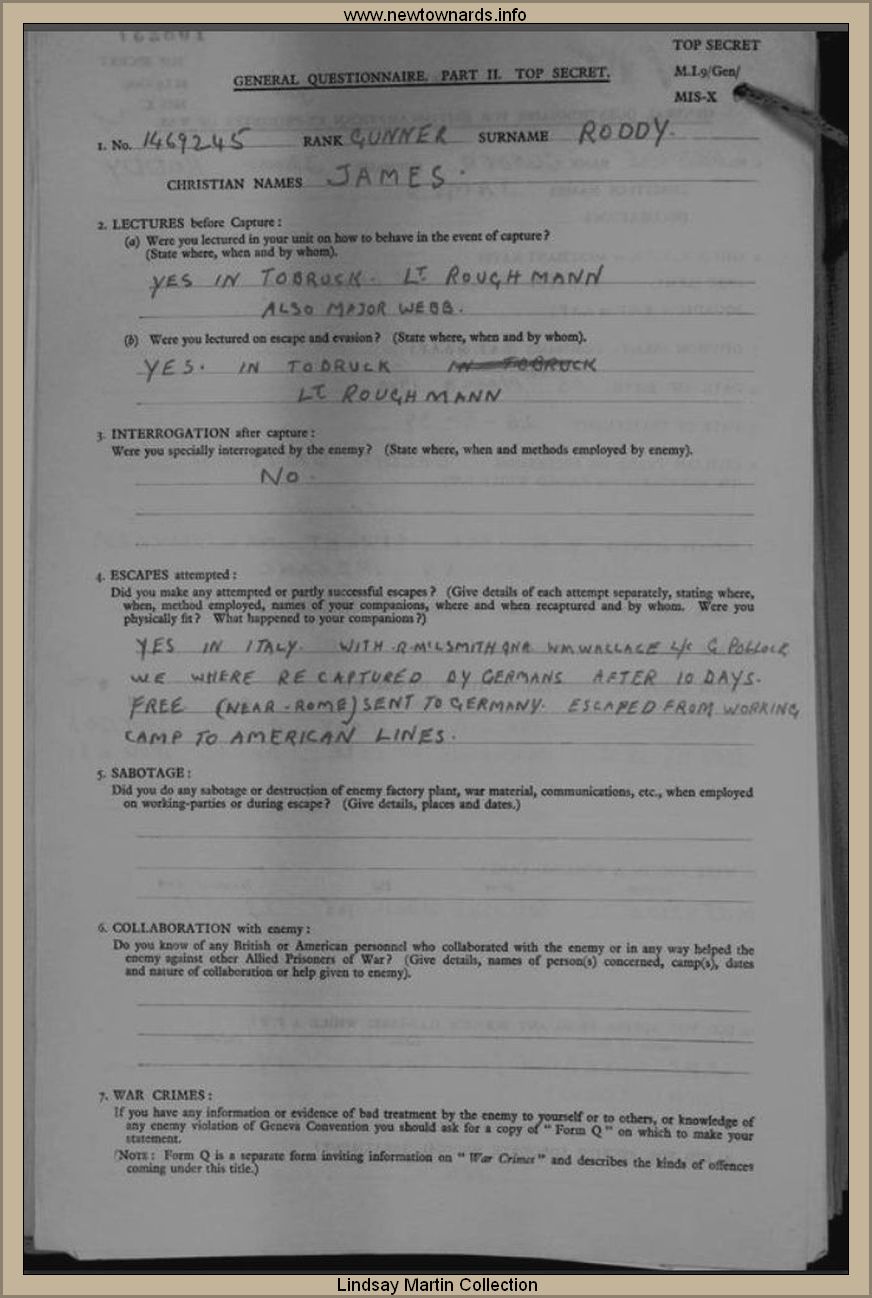 www.newtownards.info
TOP SECRET
GENERAL QUESTIONNAIRE. PART II. TOP SECRET.
M.I.9/Gen/
MIS-X
1. No. 1469245 RANK GUNNER SURNAME RODDY.
CHRISTIAN NAMES JAMES.
2. LECTURES before Capture:
(a) Were you lectured in your unit on how to behave in the event of capture?
(State where, when and by whom).
YES IN TOBRUCK. LT. ROUGHMANN
ALSO MAJOR WEBB.
(b) Were you lectured on escape and evasion? (State where, when and by whom).
YES. IN TOBRUCK IN TOBRUCK
LT ROUGHMANN
3. INTERROGATION after capture:
Were you specially interrogated by the enemy? (State where, when and methods employed by enemy).
NO.
4. ESCAPES attempted:
Did you make any attempted or partly successful escapes? (Give details of each attempt separately, stating where,
when, method employed, names of your companions, where and when recaptured and by whom. Were you
physically fit? What happened to your companions?)
YES IN ITALY. WITH GNR WM WALLACE L/C G POLLOCK
WE WHERE RECAPTURED BY GERMANS AFTER 10 DAYS.
FREE (NEAR-ROME) SENT TO GERMANY. ESCAPED FROM WORKING
CAMP TO AMERICAN LINES.
5. SABOTAGE:
Did you do any sabotage or destruction of enemy factory plant, war material, communications, etc., when employed
on working-parties or during escape? (Give details, places and dates.)
6. COLLABORATION with enemy:
Do you know of any British or American personnel who collaborated with the enemy or in any way helped the
enemy against other Allied Prisoners of War? (Give details, names of person(s) concerned, camp(s), dates
and nature of collaboration or help given to enemy).
7. WAR CRIMES:
If you have any information or evidence of bad treatment by the enemy to yourself or to others, or knowledge of
any enemy violation of Geneva Convention you should ask for a copy of "Form Q" on which to make your
statement.
(NOTE: Form Q is a separate form inviting information on "War Crimes" and describes the kinds of offences
coming under this title.)
Lindsay Martin Collection